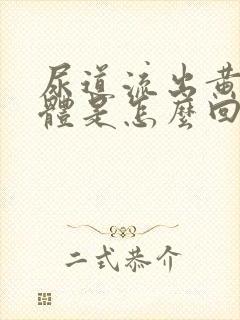 尿道流出黄
體是怎麼回
二式恭介